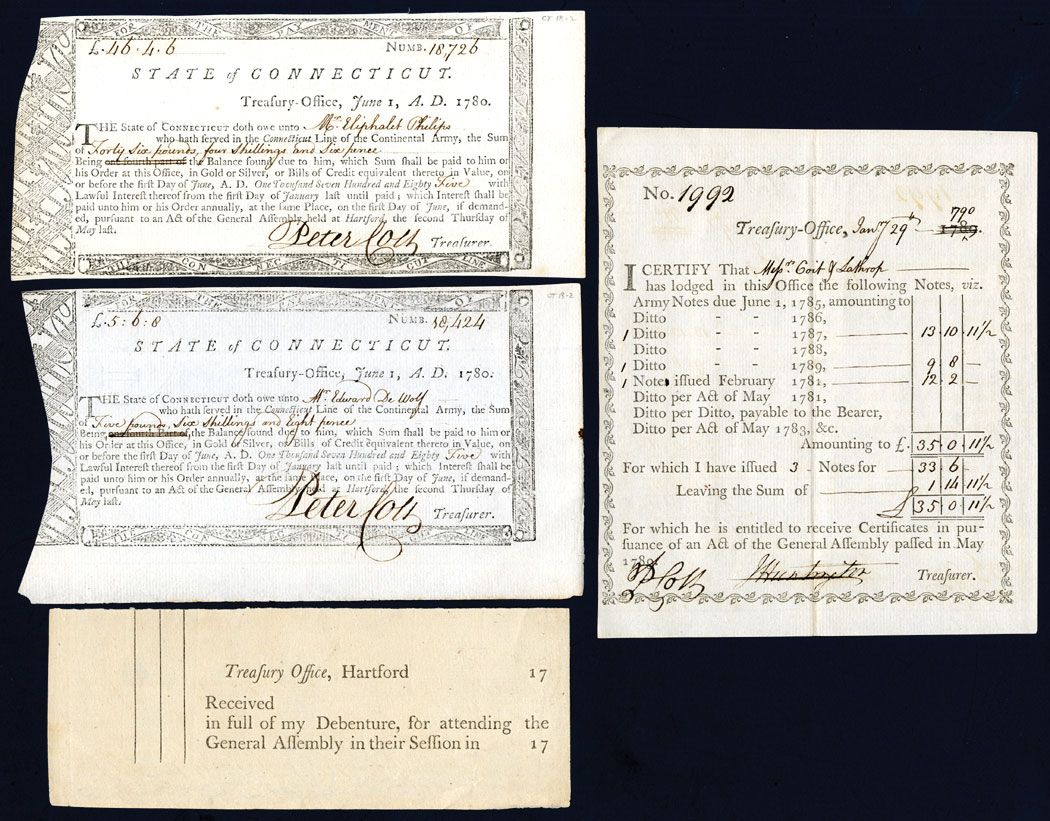 FOR THE PAYMENT OF
CT 18-2
£. 46. 4. 6 NUMB. 18,726
STATE of CONNECTICUT.
Treasury-Office, June 1, A. D. 1780.
THE State of CONNECTICUT doth owe unto Mr. Eliphalet Philips
who hath served in the Connecticut Line of the Continental Army, the Sum
of Forty Six pounds, four Shillings and Six pence
Being one fourth part of the Balance found due to him, which Sum shall be paid to him or
his Order at this Office, in Gold or Silver, or Bills of Credit equivalent thereto in Value, on
or before the first Day of June, A. D. One Thousand Seven Hundred and Eighty Five with
Lawful Interest thereof from the first Day of January last until paid; which Interest shall be
paid unto him or his Order annually, at the same Place, on the first Day of June, if demand-
ed, pursuant to an Act of the General Assembly held at Hartford, the second Thursday of
May last.
Peter Colt Treasurer.
FOR THE PAYMENT OF
CT 18-2
£. 5: 6: 8 NUMB. 18,424
STATE of CONNECTICUT.
Treasury-Office, June 1, A. D. 1780.
THE State of CONNECTICUT doth owe unto Mr. Edward De Wolf
who hath served in the Connecticut Line of the Continental Army, the Sum
of Five pounds, Six Shillings and Eight pence
Being one Fourth Part of, the Balance found due to him, which Sum shall be paid to him or
his Order at this Office, in Gold or Silver, or Bills of Credit equivalent thereto in Value, on
or before the first Day of June, A. D. One Thousand Seven Hundred and Eighty Five with
Lawful Interest thereof from the first Day of January last until paid; which Interest shall be
paid unto him or his Order annually, at the same Place, on the first Day of June, if demand-
ed, pursuant to an Act of the General Assembly held at Hartford, the second Thursday of
May last.
Peter Colt Treasurer.
Treasury Office, Hartford 17
Received
in full of my Debenture, for attending the
General Assembly in their Session in 17
No. 1992
790
Treasury-Office, Jany 29th 1789.
I CERTIFY That Messrs. Coit & Lathrop
has lodged in this Office the following Notes, viz.
Army Notes due June 1, 1785, amounting to
Ditto - - 1786,
1 Ditto - - 1787, 13 10 11 1/2
Ditto - - 1788,
1 Ditto - - 1789, 9 8 -
1 Notes issued February 1781, 12 2 -
Ditto per Act of May 1781,
Ditto per Ditto, payable to the Bearer,
Ditto per Act of May 1783, &c.
Amounting to £. 35 0 11 1/2
For which I have issued 3 - Notes for 33 6 -
Leaving the Sum of 1 14 11 1/2
£ 35 0 11 1/2
For which he is entitled to receive Certificates in pur-
suance of an Act of the General Assembly passed in May
1789.
P Colt J Huntington Treasurer.